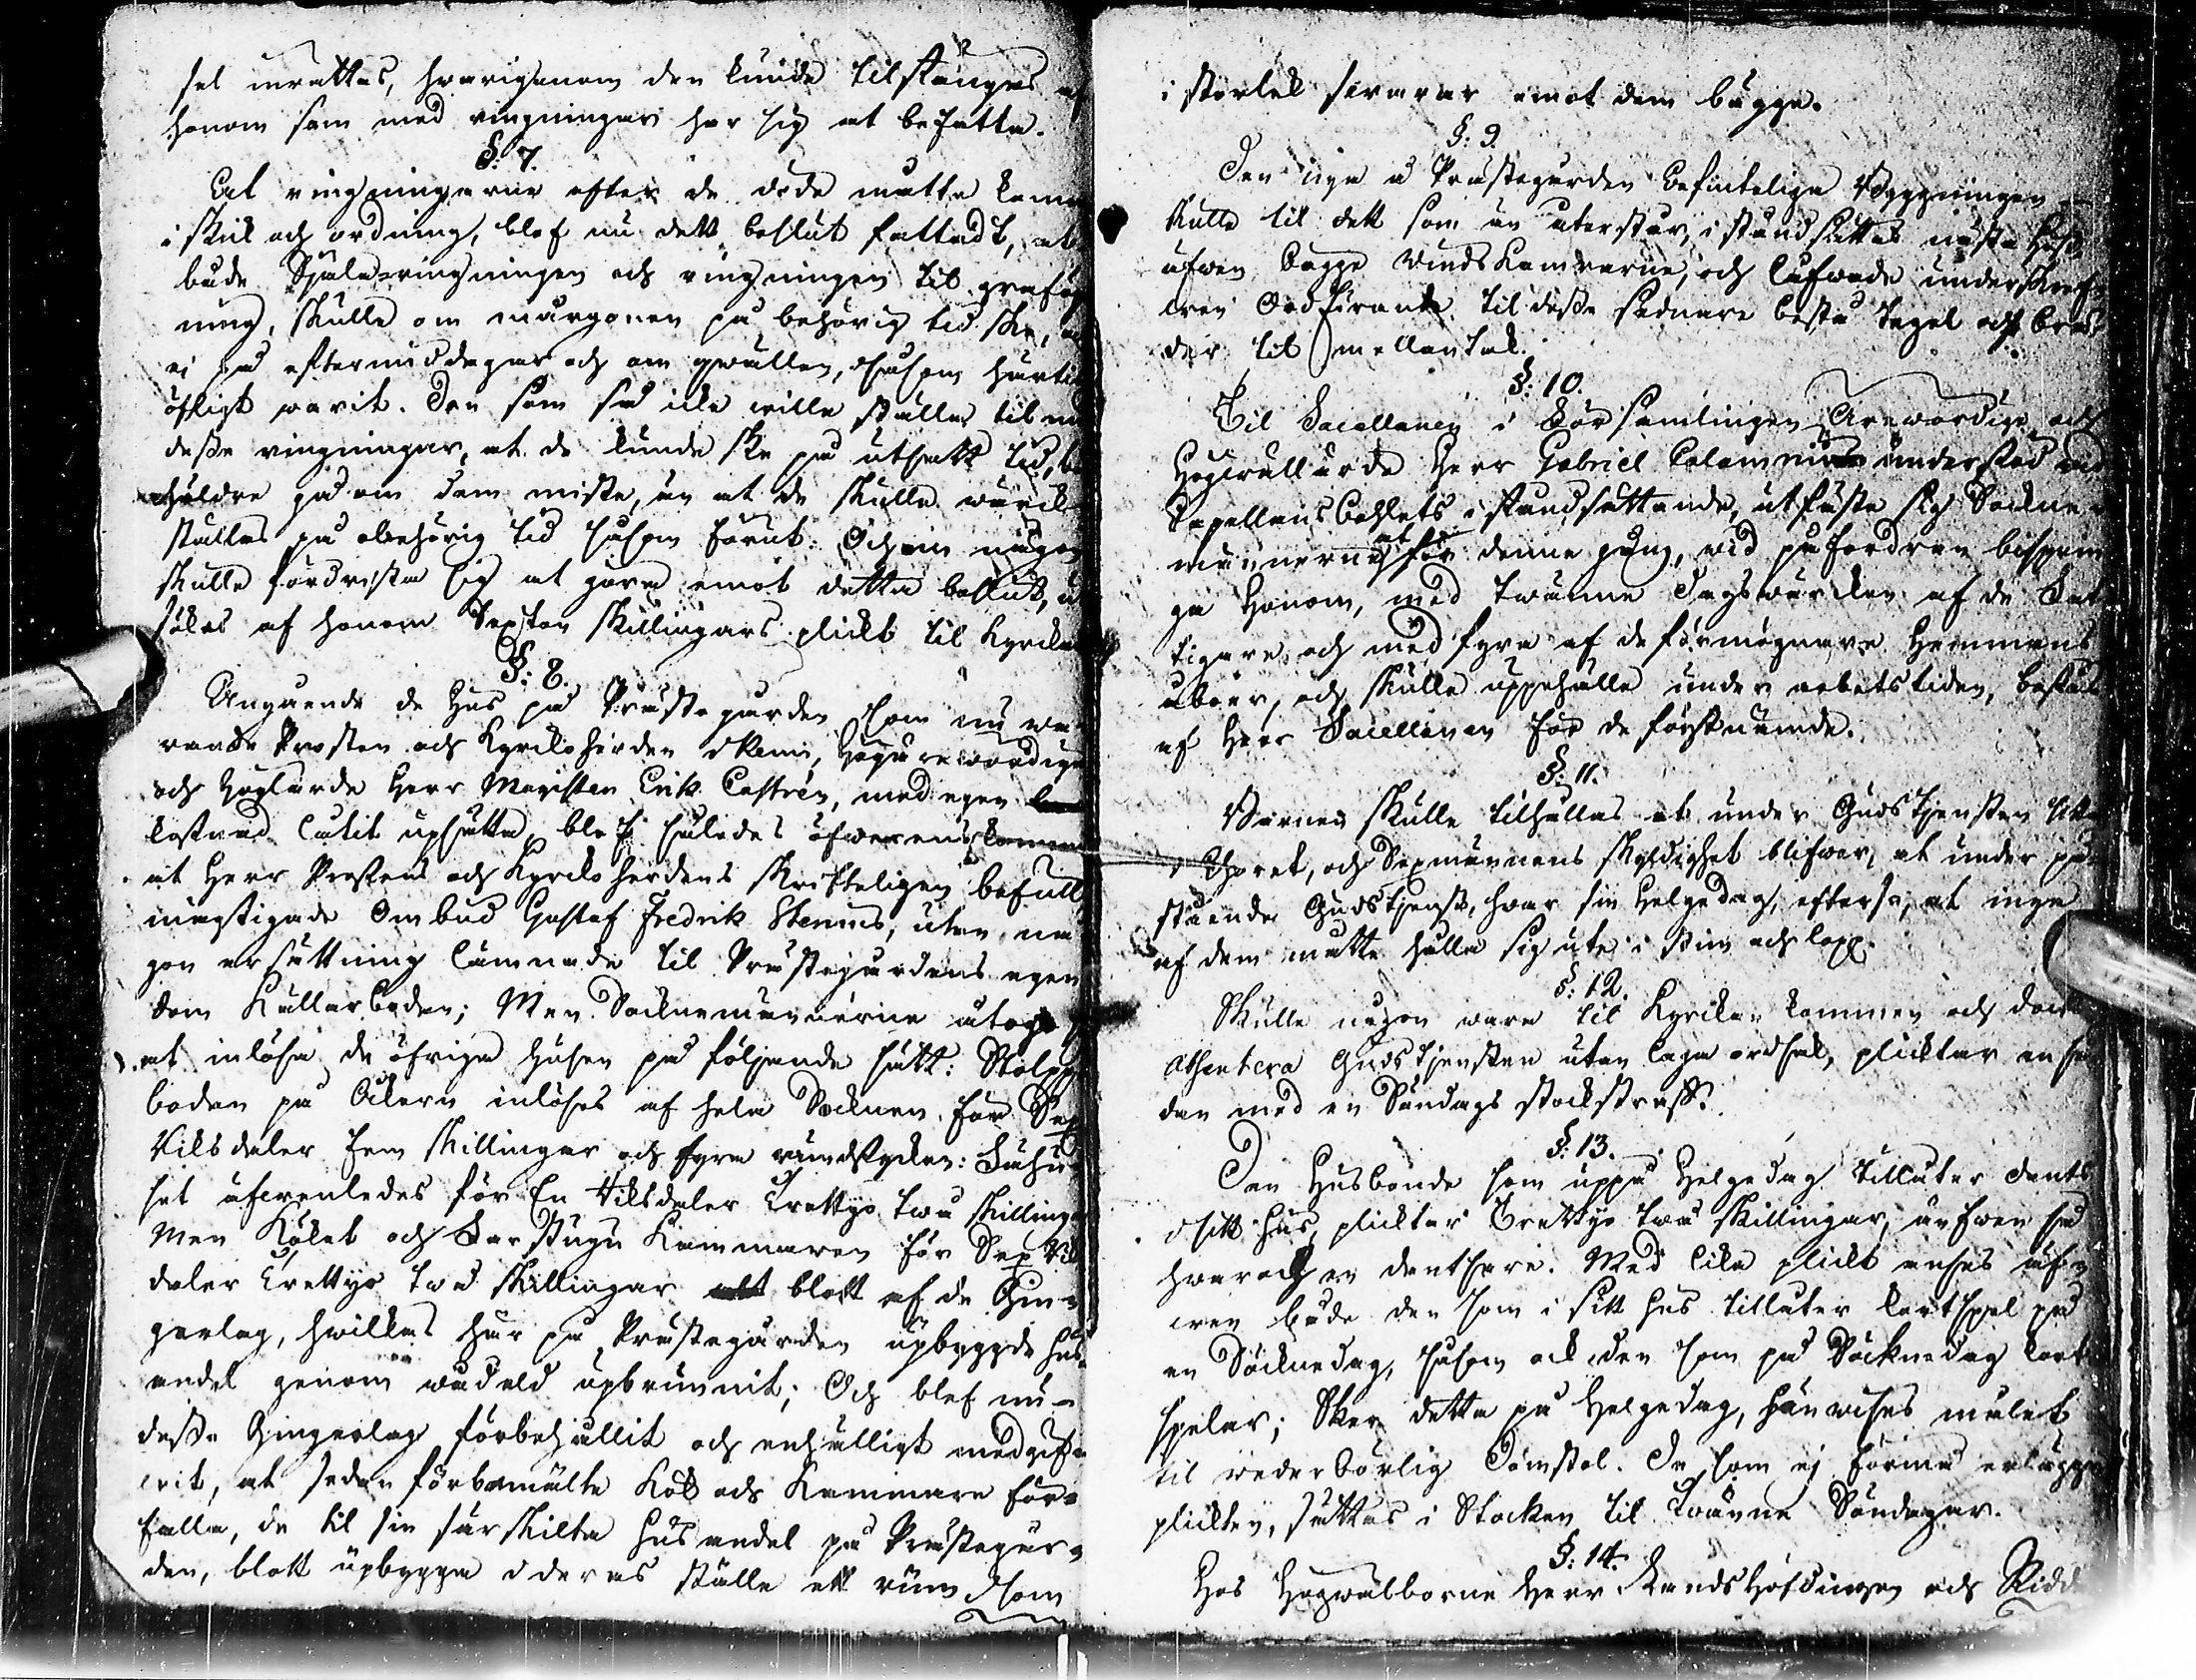 sel inrättas, hvarigenom den kunde tilstänges af
honom som med ringningar har sig at befatta.
§: 7.
At ringningarne efter de döde måtte komma
i skick och ordning, blef nu dett beslut fattadt, at
både Själaringningen och ringningen til graföp
ning, skulle om morgonen på behörig tid ske, och
ej på eftermiddagar och om qwällen, såsom härtil
öfligt warit. Den som så icke wille ställa til med
desse ringningar, at de kunde ske på utsatt tid,
häldre gå om dem miste, än at de skulle wärck
ställas på obehörig tid såsom förut: Och om någon
skulle fördrista sig at göra emot detta beslut, ut
sökes af honom Sexton skillingars plickt til Kyrckan
§: 8.
Angående de hus på Prästegården som nu wa
rande Prosten och Kyrckoherden i Kemi, Högärewördige
och Höglärde Herr Magister Erik Castrén, med egen
kostnad låtit upsätta, blef således öfwerenskommit
at Herr Prostens och Kyrckoherdens skrifteligen befull
mägtigade Ombud Gustaf Fredrik Stenius, utan nå
gon ersättning lämnade til Prästegårdens egen
dom Källarboden; Men Socknemännerne åtogo sig
at inlösa de öfriga husen på följande sätt: Stolpe
boden på Åkern inlöses af hela Socknen för Sex
Riksdaler fem skillingar och fyra rundstycken: Fähu
set äfwenledes för En Riksdaler Trettyo twå skillingar
Men Köket och Farstugu Kammaren för Sex Riks
daler Trettyo twå skillingar blott af de Gin
gärlag, hwilkas här på Prästegården upbygde hus
andel genom wådeld upbrunnit; Och blef nu
desse Gingerlag förbehållit och enhälligt medgif
wit, at sedan förbemälte Kök och Kammare för
falla, de til sin särskilta hus andel på Prästegår
den, blott upbygga i deras ställe ett rum som
i storlek swarar emot dem bägge.
§: 9.
Den nya å Prästegården befintelige Byggningen
skulle til dett som än återstår, i stånd sättas nästa Höst,
äfwen bägge Winds Kamrarne, och låfwade underskref
wen Ordförande til desse sednare bestå Tegel och bräd
der til mellantak.
§: 10.
Til Sacellanens i Församlingen Ärewördige och
Höglärde Herr Gabriel Calamnius understöd wid
Capellans bohlets i ståndsättande, utfäste sig Sockne
männerne, at för denne gång, wid påfordran bispring
ga honom, med twänne Dagswärcken af de Fat
tigare, och med fyra af de förmögnare Hemmans
åboer, och skulle uppehälle under arbetstiden, bestås
af Herr Sacellanen för de förstnämde.
§: 11.
Barnen skulle tilhållas at under Gudstjensten sitta
i Choret, och Sexmännens skyldighet blifwer, at under på
stående Gudstjenst, hvar sin helgedag, efterse, at inga
af dem måtte hålla sig ute i stim och lopp.
§: 12.
Skulle någon wara til Kyrckan kommen och dock
absentera Gudstjensten utan laga orsak, plicktar en så
dan med en Söndags stockstraff.
§: 13.
Den Husbonde som uppå Helgedag tillåter dants
i sitt hus, plicktar Trettyo twå skillingar, äfwen så
hwar och en dantsare. Med lika plickt anses äf
wen både den som i sitt hus tillåter kortspel på
en Söcknedag, såsom ock den som på Söcknedag kort
spelar; Sker detta på Helgedag, hänwises målet
til wederbörlig Domstol. De som ej förmå erlägga
plickten, sättas i Stocken til Twänne Söndagar.
§: 14.
Hos Högwälborne Herr Landshöfdingen och Ridd